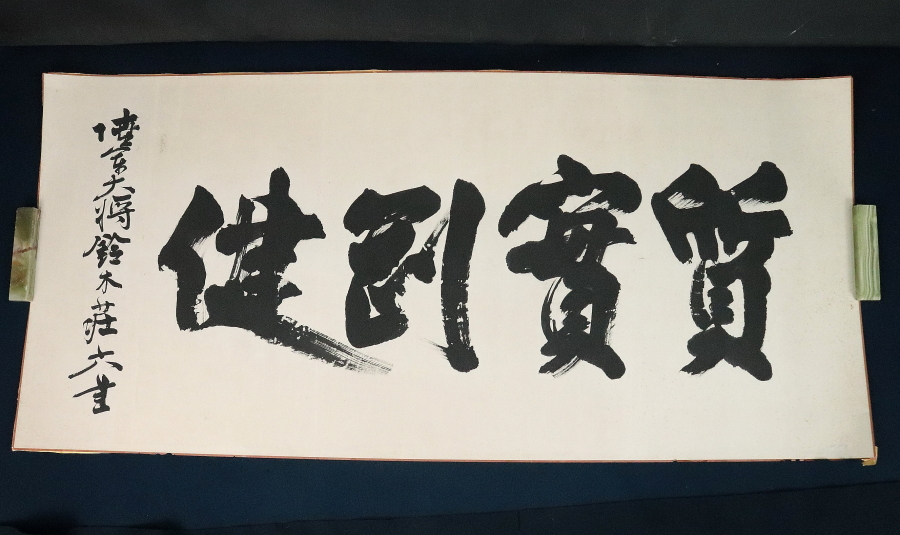 質實剛健
陸軍大將鈴木莊六書